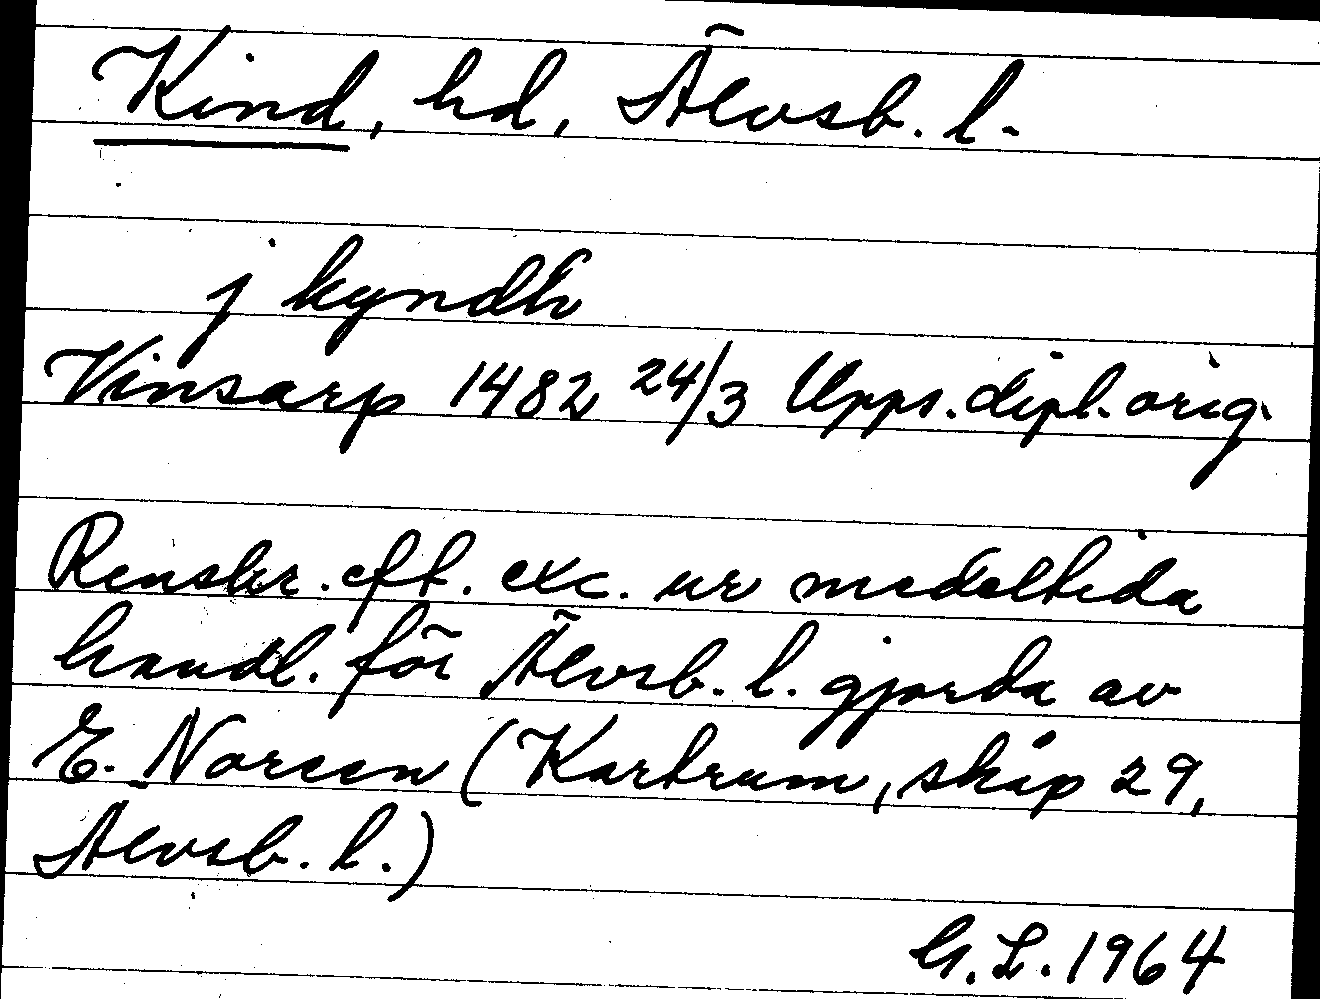 Kind, hd, Älvsb. l.
j kyndh
Vinsarp 1482 24/3 Upps. dipl. orig.
Renskr. eft. exc. ur medeltida
handl. för Älvsb. l. gjorda av
E. Noreen (Kartrum, skåp 29,
Älvsb. l.)
G. L. 1964